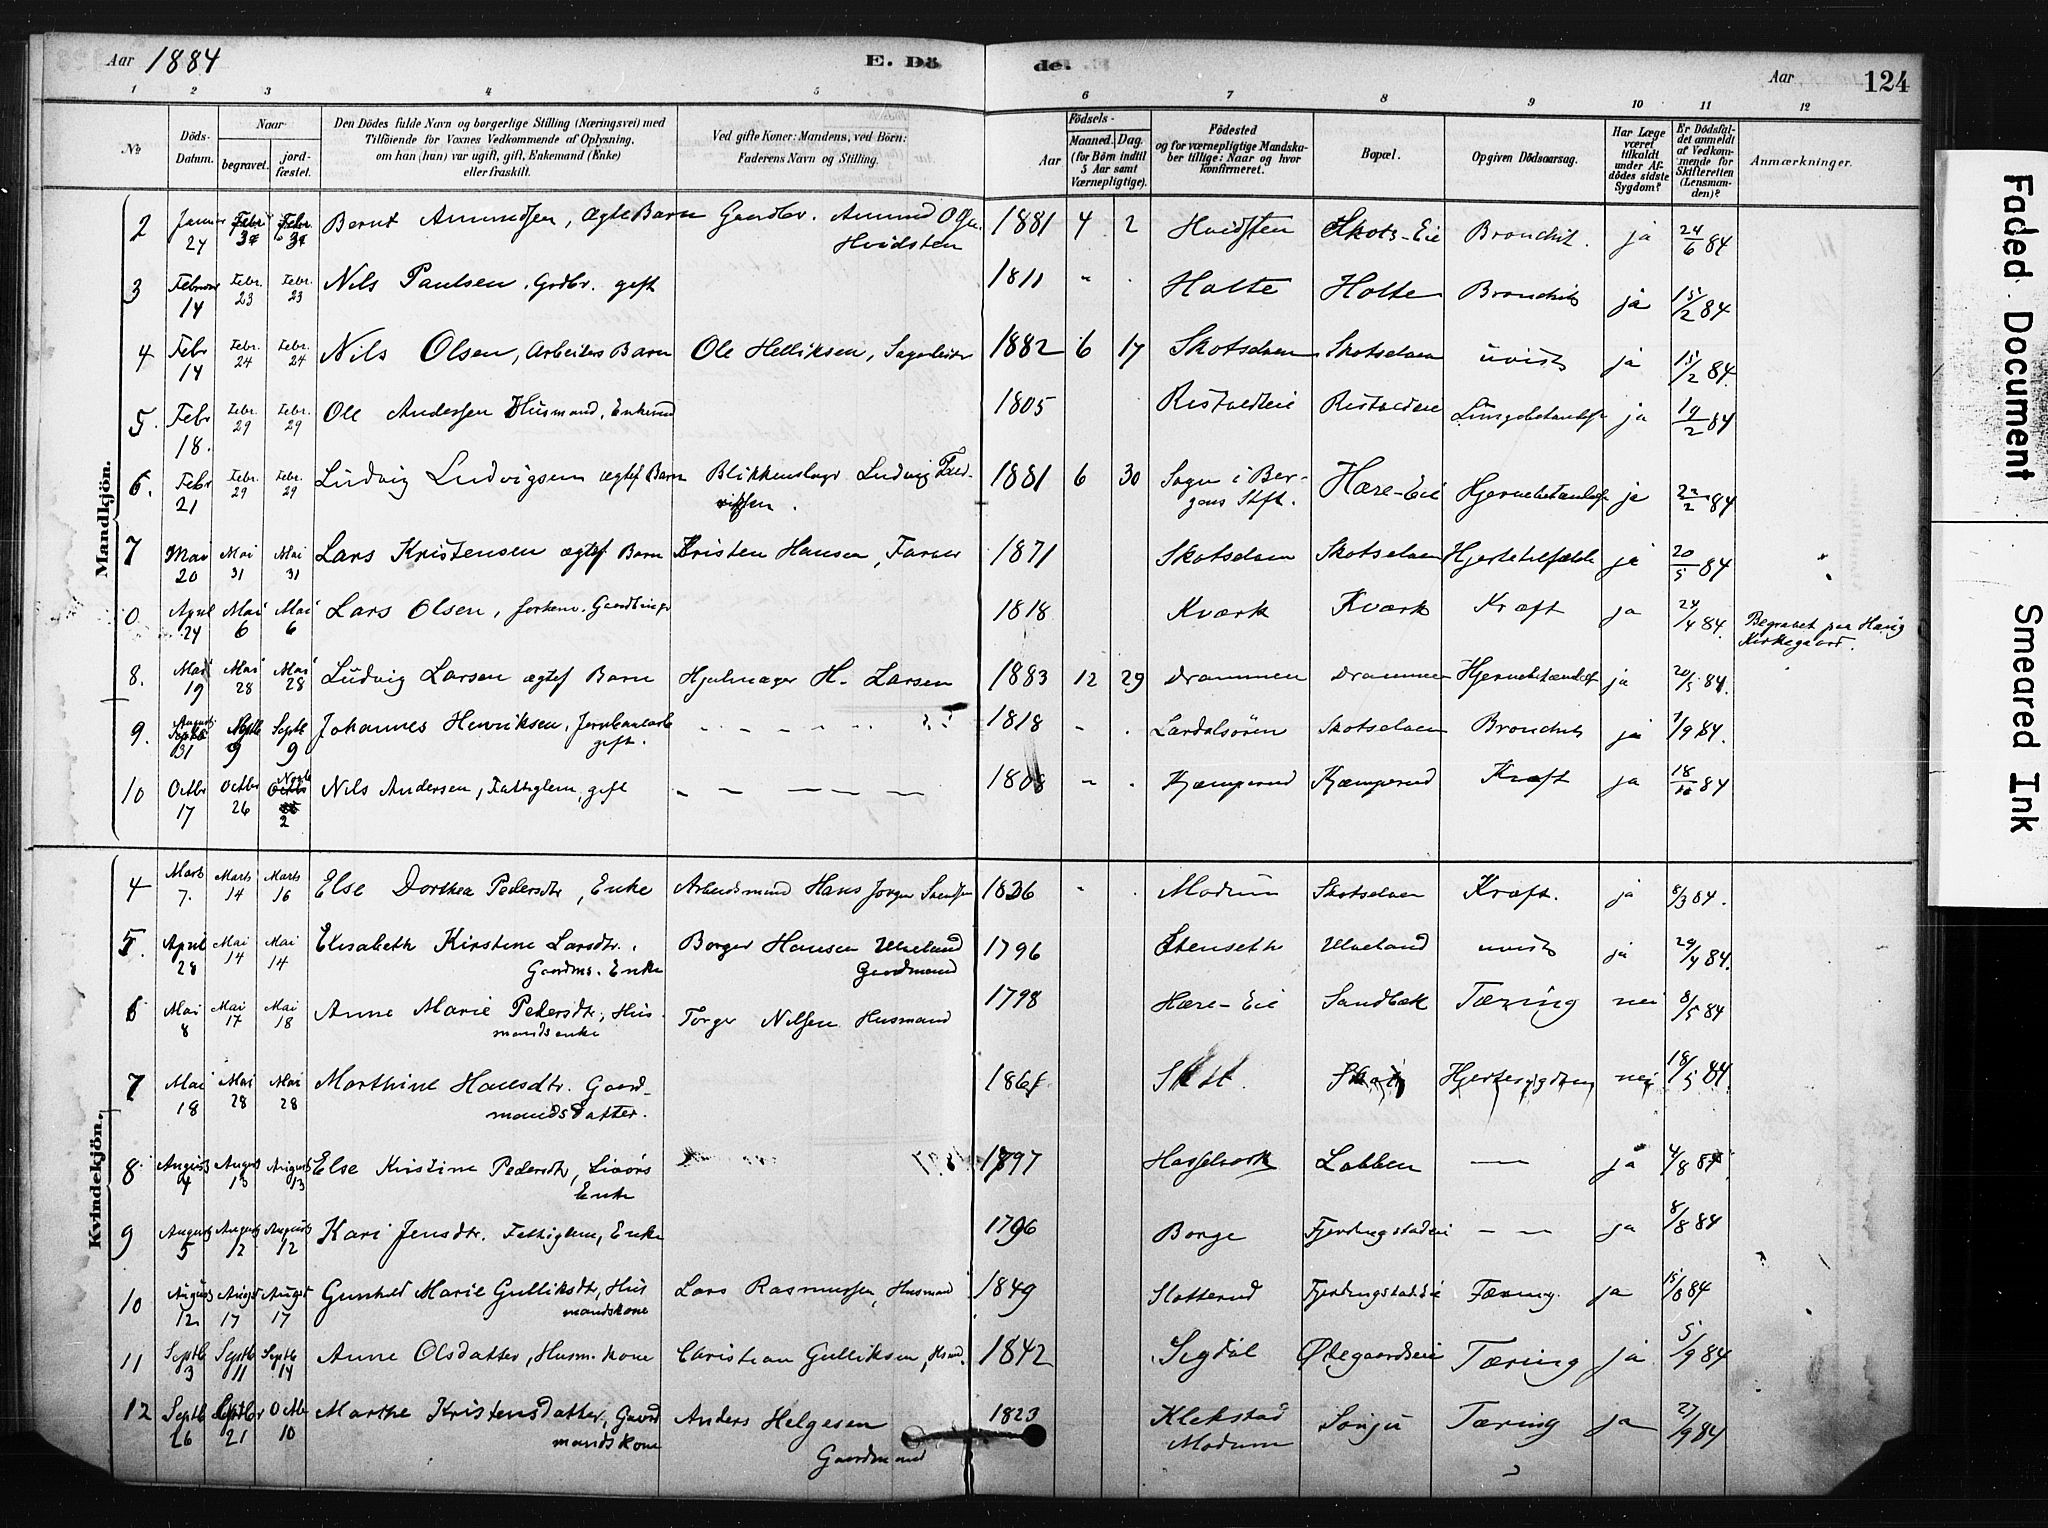 Aar 1884 E. Dö de. Aar 124
1 2 3 4 5 6 7 8 9 10 11 12
№
Döds-Datum.
Naar
begravet. jordfæstet.
Den Dödes fulde Navn og borgerlige Stilling (Næringsvei) med
Tilföiende for Voxnes Vedkommende af Oplysning,
om han (hun) var ugift, gift, Enkemand (Enke)
eller fraskilt.
Ved gifte Koner: Mandens, ved Börn:
Faderens Navn og Stilling.
Födsels-
Aar Maaned. Dag.
(for Börn indtil 5 Aar samt Værnepligtige).
Födested
og for værnepligtige Mandskaber tillige: Naar og hvor konfirmeret.
Bopæl.
Opgiven Dödsaarsag.
Har Læge været tilkaldt under Afdödes sidste Sygdom?
Er Dödsfaldet anmeldt af Vedkommende for Skifteretten (Lensmanden)?
Anmærkninger.
Mandkjön.
2 Januar 24 Febr. Febr. Bernt Amundsen, ægte Barn Gaardbr. Amund Olsen Hvidsten 1881 4 2 Hvidsten Skots-Eie Bronchit. ja 24/6 84
3 Februar 14 Febr. 23 Febr. 23 Nils Paulsen. Grdbr. gift 1811 " . Holte Holte Bronchit ja 15/2 84
4 Febr 14 Febr. 24 Febr. 24 Nils Olsen, Arbeiders Barn Ole Helliksen, Sagarbeider 1882 6 17 Skotselven Skotselven uvist ja 15/2 84.
5. Febr 18. Febr. 29 Febr. 29 Ole Andersen Husmand, Enkemd 1805 ja 19/2 84
6. Febr 21 Febr. 29 Febr. 29 Ludvig Ludvigsen ægtef Barn Blikkenslager Ludvig 1881 6 30 Sogn i Bergens Stift. Hære-Eie Hjernebetændelse ja 22/2 84
7 Mai 20 Mai 31 Mai 31 Lars Kristensen ægtef Barn Kristen Hansen, Farver 1871 Skotselven Skotselven Hjertetilfælde ja 20/5 84
0 April 24 Mai 6 Mai 6 Lars Olsen, forhenv. Gaardbruger 1818 Kværk Kværk Kræft ja 24/4 84. Begravet paa Haug Kirkegaard.
8. Mai 19 Mai 28 Mai 28 Ludvig Larsen ægtef Barn Hjulmager H. Larsen 1883 12 29 Drammen Drammen Hjernebetændelse ja 20/5 84.
9. August 31 Septb 9 Septb 9 Johannes Henriksen, Jernbanearb. gift. 1818 - . Lærdalsören Skotselven Bronchit ja 1/9 84.
10 Octbr 17 Octbr 26 Novb 2 Nils Andersen, Fattiglem, gift 1808 - . Kjæmperud Kjæmperud Kræft ja 18/10 84
Kvindekjön.
4 Marts 7. Marts 14 Marts 16 Else Dorthea Pedersdtr, Enke Arbeidsmand Hans Jörgen Svendsen 1836 " . Modum Skotselven Kræft. ja 8/3 84.
5. April 28 Mai 14 Mai 14 Elisabeth Kirstine Larsdtr. Gaardms. Enke Borger Hansen Ulveland Gaardmand 1796 Stenseth Ulveland uvist ja 29/4 84.
6 Mai 8 Mai 17 Mai 18 Anne Marie Pedersdtr, Husmandsenke Torger Nilsen Husmand 1798 Hære-Eie Sandbæk Tæring nei 8/5 84
7 Mai 18 Mai 28 Mai 28 Marthine Hansdtr. Gaardmandsdatter. Skot. Skot Hjertesygdom nei 18/5 84.
8 August 4 August 13 August 13 Else Kristine Pedersdtr, Enke 1797 Hasselverk Lobben — ja 4/8 84
9 August 5 August 12 August 12 Kari Jensdtr. Fattiglem, Enke 1796 Borge Fjerdingstadeie — — ja 8/8 84
10 August 12 August 17 August 17 Gunhild Marie Gulliksdtr, Husmandskone Lars Rasmussen, Husmand 1849 Slotterud Fjerdingstadeie Tæring. ja 15/8 84
11 Septb 3 Septb 11 Septb 14 Anne Olsdatter, Husm. kone Christian Gulliksen, Hsmd. 1842 Sigdal Ödegaardseie Tæring ja 5/9 84
12 Septb 26 Septbr 21 Octbr 10 Marthe Kristensdatter, Gaardmandskone Anders Helgesen Gaardmand 1823 Klekstad Modum Sonju Tæring ja 27/9 84
Faded Document
Smeared Ink